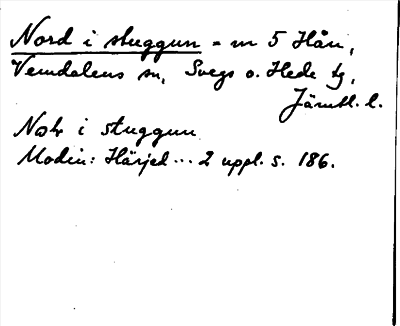 Nord i stuggun - m 5 Hån,
Vemdalens sn, Svegs o. Hede tg,
Jämtl. l.
Nol i stuggun
Modin: Härjed... 2 uppl. s. 186.